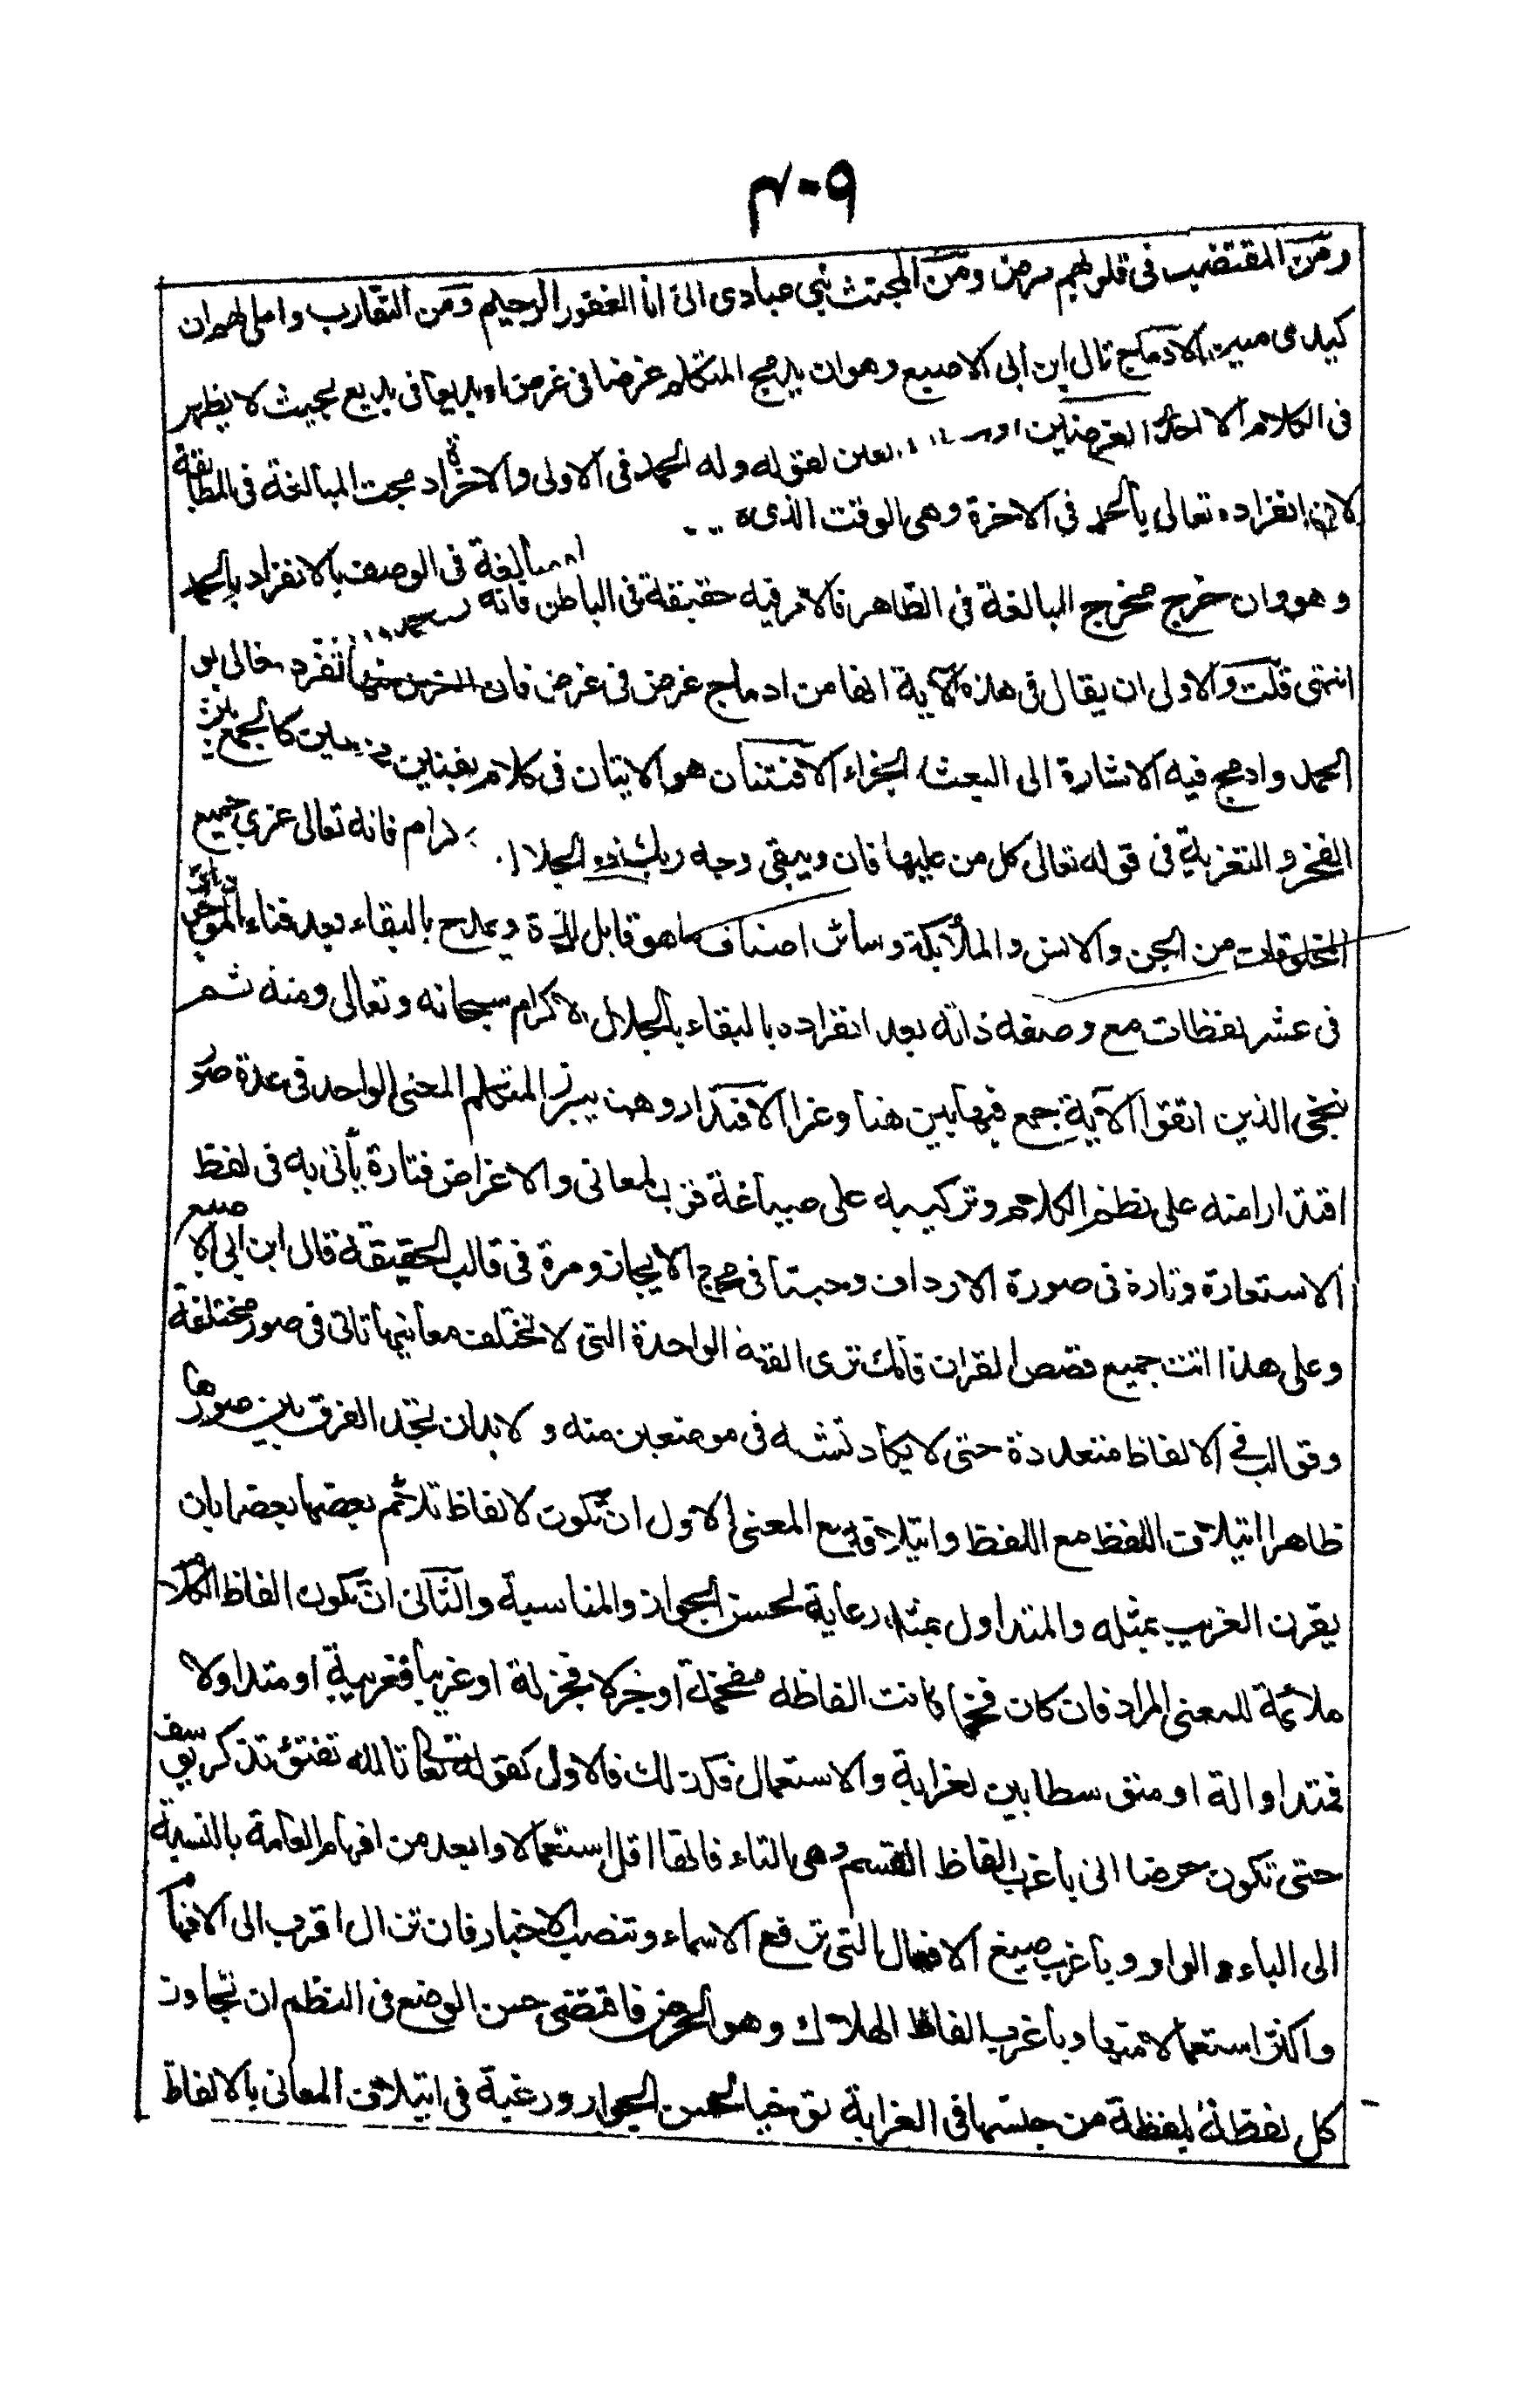 ٣٠٩
ومن المقتضب فى قلوبهم مرض ومن المجتث نبى عبادى انى انا الغفور الرحيم ومن التقارب واملى لهم ان
كيدى متين الادماج قال ابن ابى الاصبع وهو ان يدمج المتكلم غرضا فى غرض او بديعا فى بديع بحيث لا يظهر
فى الكلام الا احد الغرضين او البديعين لقوله وله الحمد فى الاولى والاخرة ادمجت المبالغة فى المطابقة
لان انفراده تعالى بالحمد فى الاخرة وهى الوقت الذى مبالغة فى الوصف بالانفراد بالحمد
وهو وان خرج مخرج المبالغة فى الظاهر فالامر فيه حقيقة فى الباطن فانه
انتهى قلت والاولى ان يقال فى هذه الآية انها من ادماج غرض فى غرض فان الغرض منها تفرده تعالى بو
الحمد وادمج فيه الاشارة الى البعث الجزاء الافتنان هو الاتيان فى كلام بفنين مختلفين كالجمع بين
الفخر والتعزية فى قوله تعالى كل من عليها فان ويبقى وجه ربك ذو الجلال كرام فانه تعالى عزى جميع
المخلوقات من الجن والانس والملائكة وسائر اصناف ما هو قابل للحياة ويمدح بالبقاء بعد فناء الموجودات
فى عشر لفظات مع وصفه ذاته بعد انفراده بالبقاء بالجلال الاكرام سبحانه وتعالى ومنه ثم
ننجى الذين اتقوا الآية جمع فيها بين هنا وعزا الاقتدار وهو ان يبرز المتكلم المعنى الواحد فى عدة صور
اقتدارا منه على نظم الكلام وتركيبه على صياغة قوالب المعانى والاغراض فتارة يأتى به فى لفظ
الاستعارة وتارة فى صورة الارداف وحينا فى مخرج الايجاز ومرة فى قالب الحقيقة قال ابن ابى الاصبع
وعلى هذا اتت جميع قصص القران فانك ترى القصة الواحدة التى لا تختلف معانيها تاتى فى صور مختلفة
وقوالب فى الالفاظ متعددة حتى لا يكاد تشبه فى موضعين منه ولا بد ان تجد الفرق بين صورها
ظاهرا ايتلاف اللفظ مع اللفظ وايتلافه مع المعنى الاول ان تكون الالفاظ تلائم بعضها بعضا بان
يقرن الغريب بمثله والمتداول بمثله رعاية لحسن الجوار والمناسبة والثانى ان تكون الفاظ الكلام
ملائمة للمعنى المراد فان كان فخما كانت الفاظه مفخمة او جزلا فجزلة او غريبا فغريبة او متداولا
فمتداوالة او متوسطا بين لغرابة والاستعمال فكذلك فالاول كقوله تعالى تالله تفتؤ تذكر يوسف
حتى تكون حرضا اتى باغرب الفاظ القسم وهى التاء فانها اقل استعمالا وابعد من افهام العامة بالنسبة
الى الباء والواو وباغرب صيغ الافعال التى ترفع الاسماء وتنصب الاخبار فان تزال اقرب الى الافهام
واكثر استعمالا منها وباغرب الفاظ الهلاك وهو الحرض فاقتضى حسن الوضع فى النظم ان تجاور
كل لفظة بلفظة من جنسها فى الغرابة توخيا لحسن الجوار ورغبة فى ايتلاف المعانى بالالفاظ